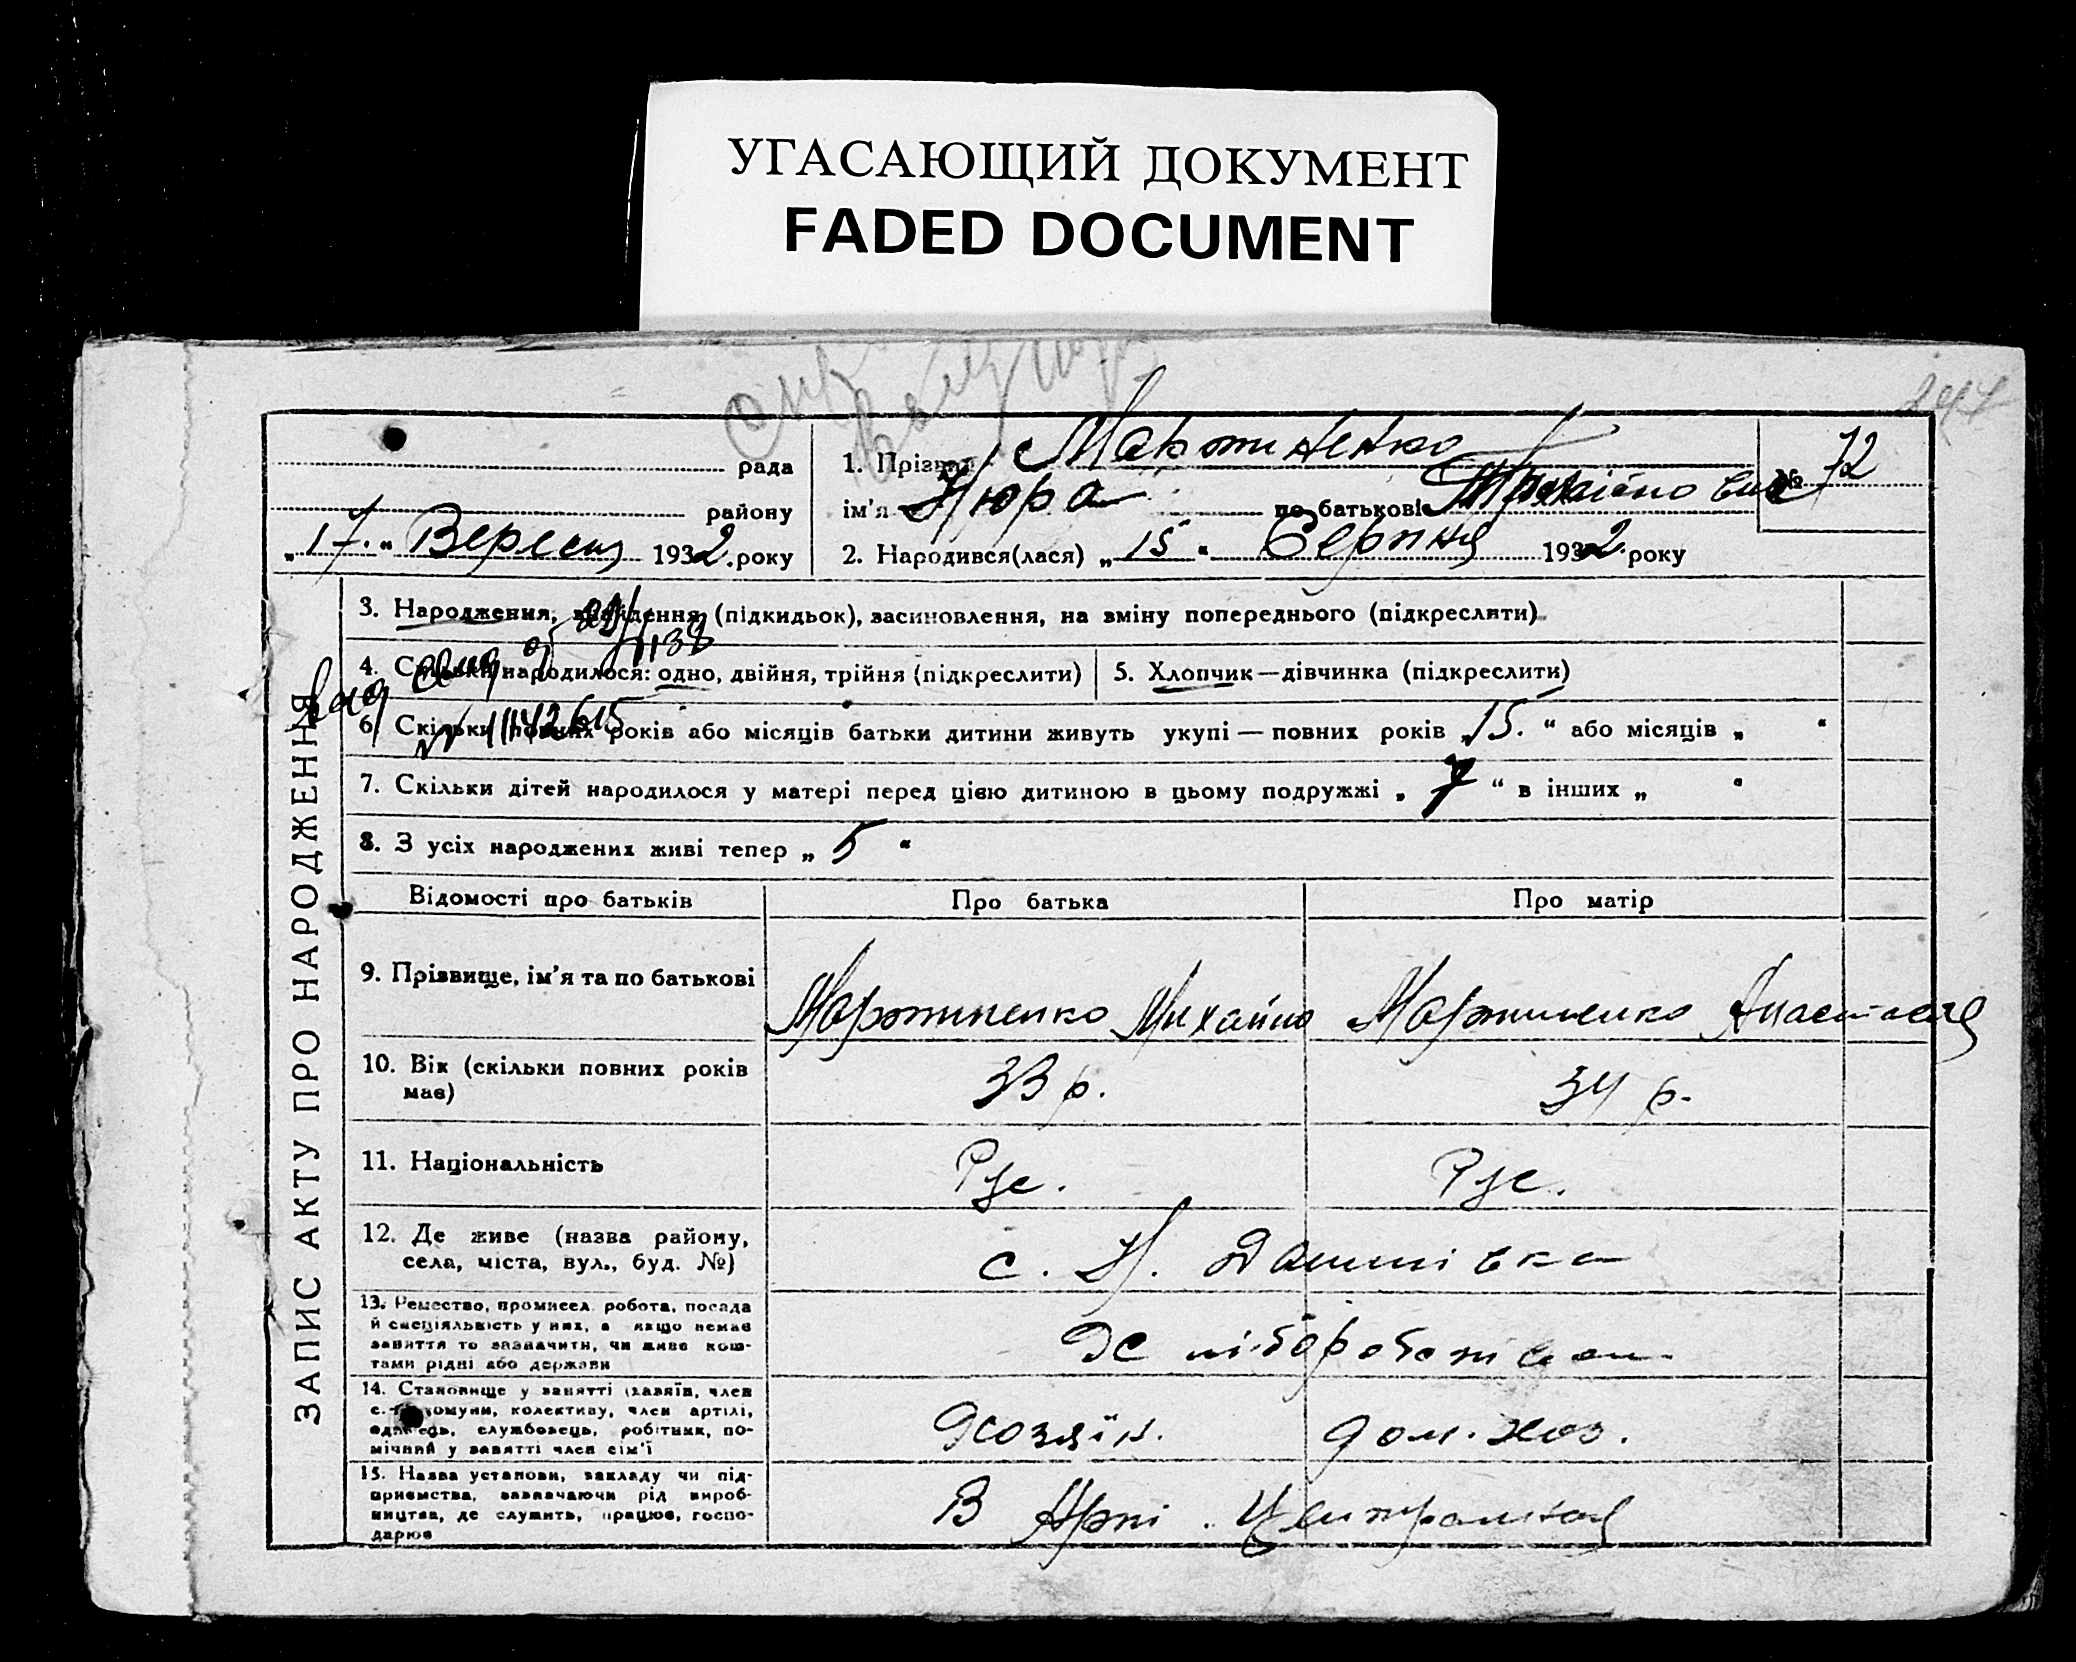 УГАСАЮЩИЙ ДОКУМЕНТ
FADED DOCUMENT
ЗАПИС АКТУ ПРО НАРОДЖЕННЯ
рада
району
„17.“ Вересня 1932. року
1. Прізвище Мартиненко
ім'я Нюра по батькові
№ 72
2. Народився(лася) „15“ Серпня 1932. року
3. Народження, знайдення (підкидьок), засиновлення, на зміну попереднього (підкреслити)
4. Скільки народилося: одно, двійня, трійня (підкреслити)
5. Хлопчик—дівчинка (підкреслити)
6. Скільки повних років або місяців батьки дитини живуть укупі — повних років „15.“ або місяців „ “
7. Скільки дітей народилося у матері перед цією дитиною в цьому подружжі „7“ в інших „ “
8. З усіх народжених живі тепер „5“
Відомості про батьків Про батька Про матір
9. Прізвище, ім'я та по батькові Мартиненко Михайло Мартиненко Анастасія
10. Вік (скільки повних років має) 33 р. 34 р.
11. Національність Рус. Рус.
12. Де живе (назва району, села, міста, вул., буд. №) с. Н. Данилівка
13. Ремество, промисел, робота, посада
й спеціяльність у них, а якщо немає
заняття то зазначити, чи живе кош-
тами рідні або держави
14. Становище у занятті (хазяїн, член
с.-г. комуни, колективу, член артілі,
одинець, службовець, робітник, по-
мічний у занятті член сім'ї
Хозяїн. дом. хоз.
15. Назва установи, закладу чи під-
приємства, зазначаючи рід вироб-
ництва, де служить, працює, госпо-
дарює
В Арті